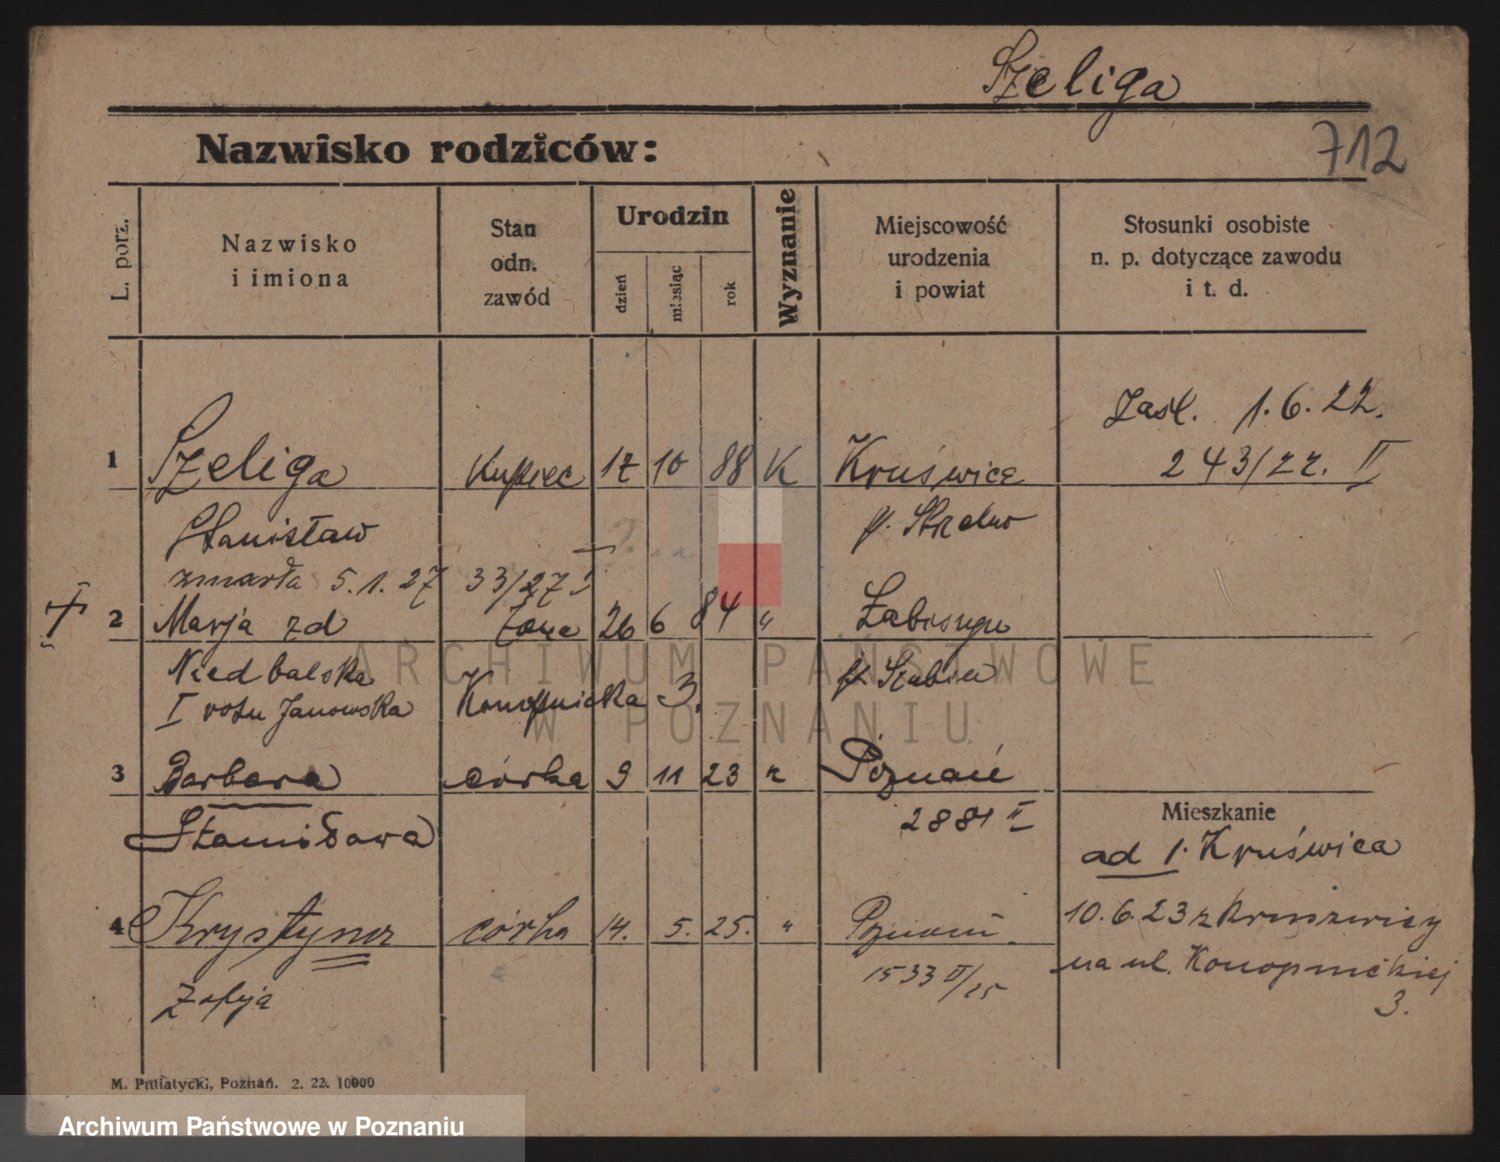 Szeliga
712
Nazwisko rodziców:
L. porz.
Nazwisko
i imiona
Stan
odn.
zawód
Urodzin
dzień
miesiąc
rok
Wyznanie
Miejscowość
urodzenia
i powiat
Stosunki osobiste
n. p. dotyczące zawodu
i t. d.
Zasl. 1.6.22.
1 Szeliga Kupiec 17 10 88 K Kruświca 243/22. II
Stanisław p. Strzelno
zmarła 5.1.27 33/27 I
2 Marja zd żona 26 6 84 " Łabiszyn
Niedbalska p. Szubin
I voto Janowska Konopnicka 3.
3 Barbara córka 9 11 23 k Poznań
2881 II
Mieszkanie
Stanisława
ad 1. Kruświca
4 Krystyna córka 14. 5. 25. " Poznań
10.6.23 z Kruszwicy
na ul. Konopnickiej
3.
1533 II/25
Zofja
M. Putiatycki, Poznań. 2. 22. 10000
ARCHIWUM PAŃSTWOWE
W POZNANIU
Archiwum Państwowe w Poznaniu